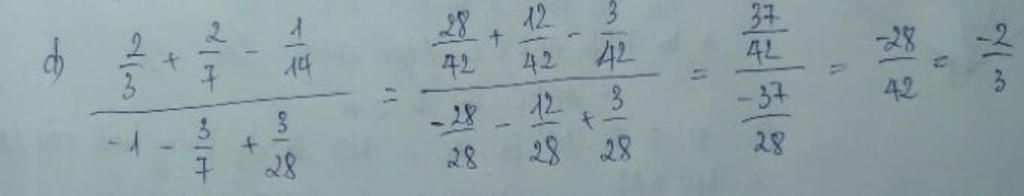 d) \frac{\frac{2}{3} + \frac{2}{7} - \frac{1}{14}}{-1 - \frac{3}{7} + \frac{3}{28}} = \frac{\frac{28}{42} + \frac{12}{42} - \frac{3}{42}}{\frac{-28}{28} - \frac{12}{28} + \frac{3}{28}} = \frac{\frac{37}{42}}{\frac{-37}{28}} = \frac{-28}{42} = \frac{-2}{3}